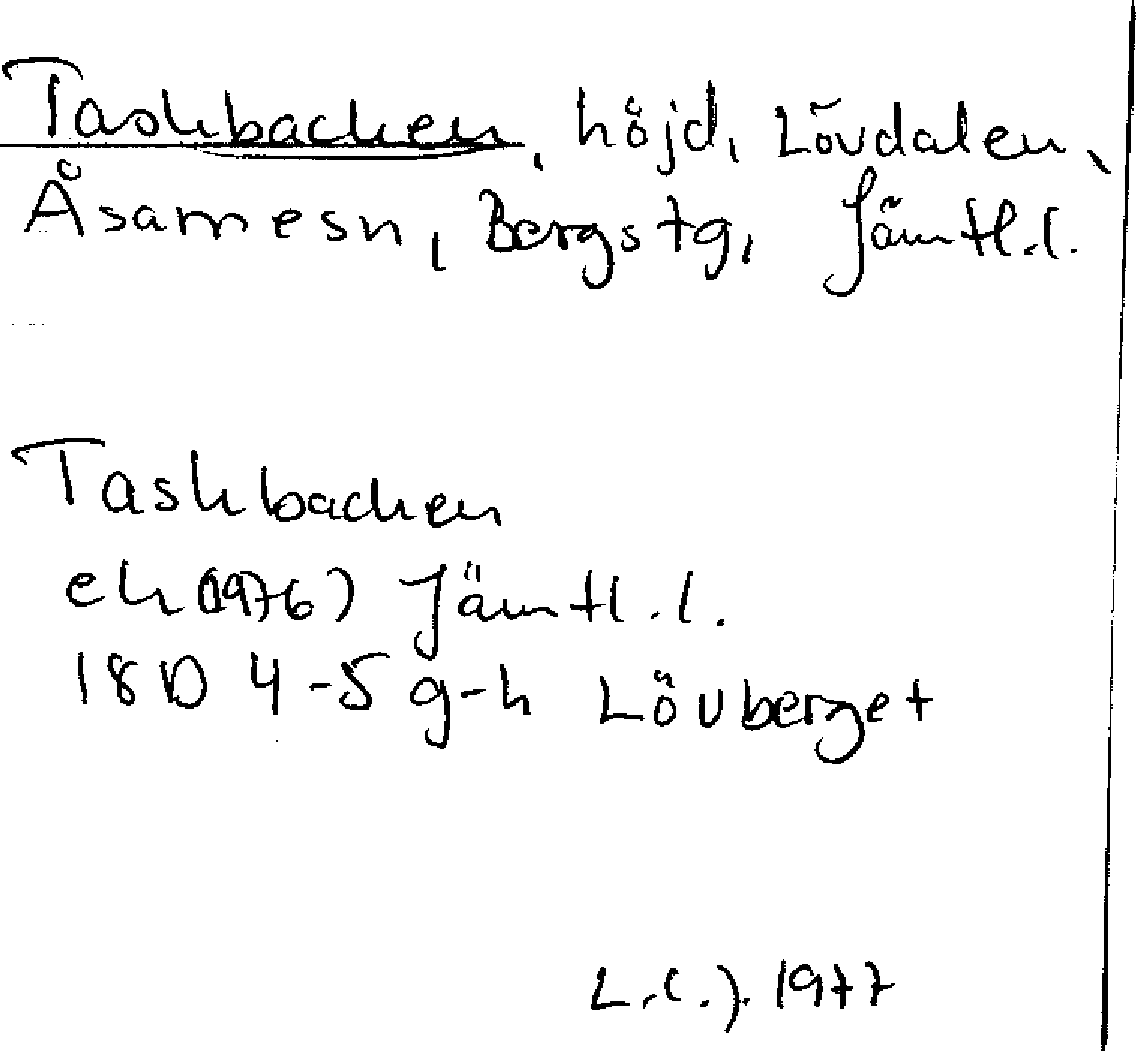 Taskbacken, höjd, Lövdalen,
Åsarnesn, Bergstg, Jämtl.l.
Taskbacken
ek (1976) Jämtl.l.
18D 4-5 g-h Lövberget
L.C.J. 1977